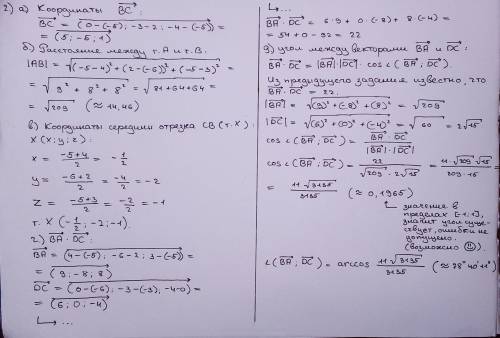 2) а) Координаты BC:
BC = (0-(-5); -3-2; -4-(-5)) =
= (5; -5; 1)
б) Расстояние между т. А и т. В.
|AB| = √((-5-4)² + (2-(-6))² + (-5-3)²) =
= √(9² + 8² + 8²) = √(81+64+64) =
= √209 (≈ 14,46)
в) Координаты середины отрезка CB (т. X):
X (x; y; z):
x = (-5+4)/2 = -1/2
y = (-6+2)/2 = -4/2 = -2
z = (-5+3)/2 = -2/2 = -1
т. X (-1/2; -2; -1).
г) BA · DC:
BA = (4-(-5); -6-2; 3-(-5)) =
= (9; -8; 8)
DC = (0-(-6); -3-(-3); -4-0) =
= (6; 0; -4)
↳ ...
↳ ...
BA · DC = 6·9 + 0·(-8) + 8·(-4) =
= 54 + 0 - 32 = 22
д) угол между векторами BA и DC:
BA · DC = |BA|·|DC| · cos∠(BA; DC).
Из предыдущего задания известно, что
BA · DC = 22.
|BA| = √((9)² + (-8)² + (8)²) = √209
|DC| = √((6)² + (0)² + (-4)²) = √60 = 2√15
cos∠(BA; DC) = BA · DC / |BA|·|DC|
cos∠(BA; DC) = 22 / √209 · 2√15 = 11·√209·√15 / 209·15 =
= 11√3135 / 3135 (≈ 0,1965)
↳ значение в
пределах [-1; 1],
значит угол суще-
ствует, ошибки не
допущено.
(возможно)
∠(BA; DC) = arccos 11√3135 / 3135 (≈ 78° 40' 11")